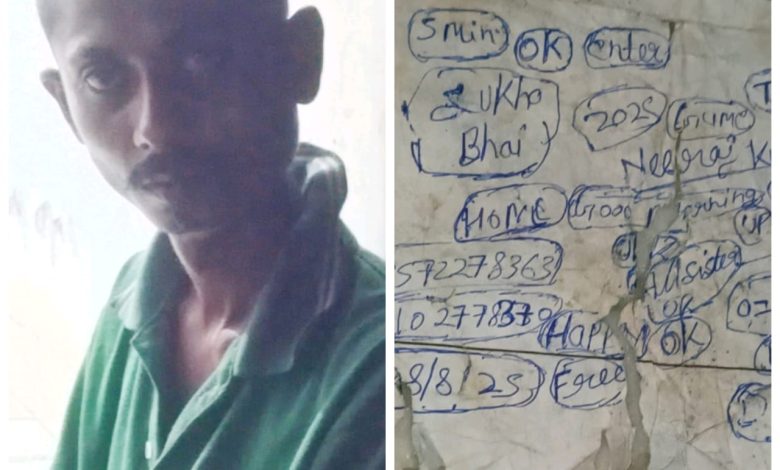 5 min OK enter
Sukha
Bhai
2025
Neeraj K
HOME Good morning
UP
572278363
All sister
UP
10 2778370
HAPPY OK
8/8/25 Free